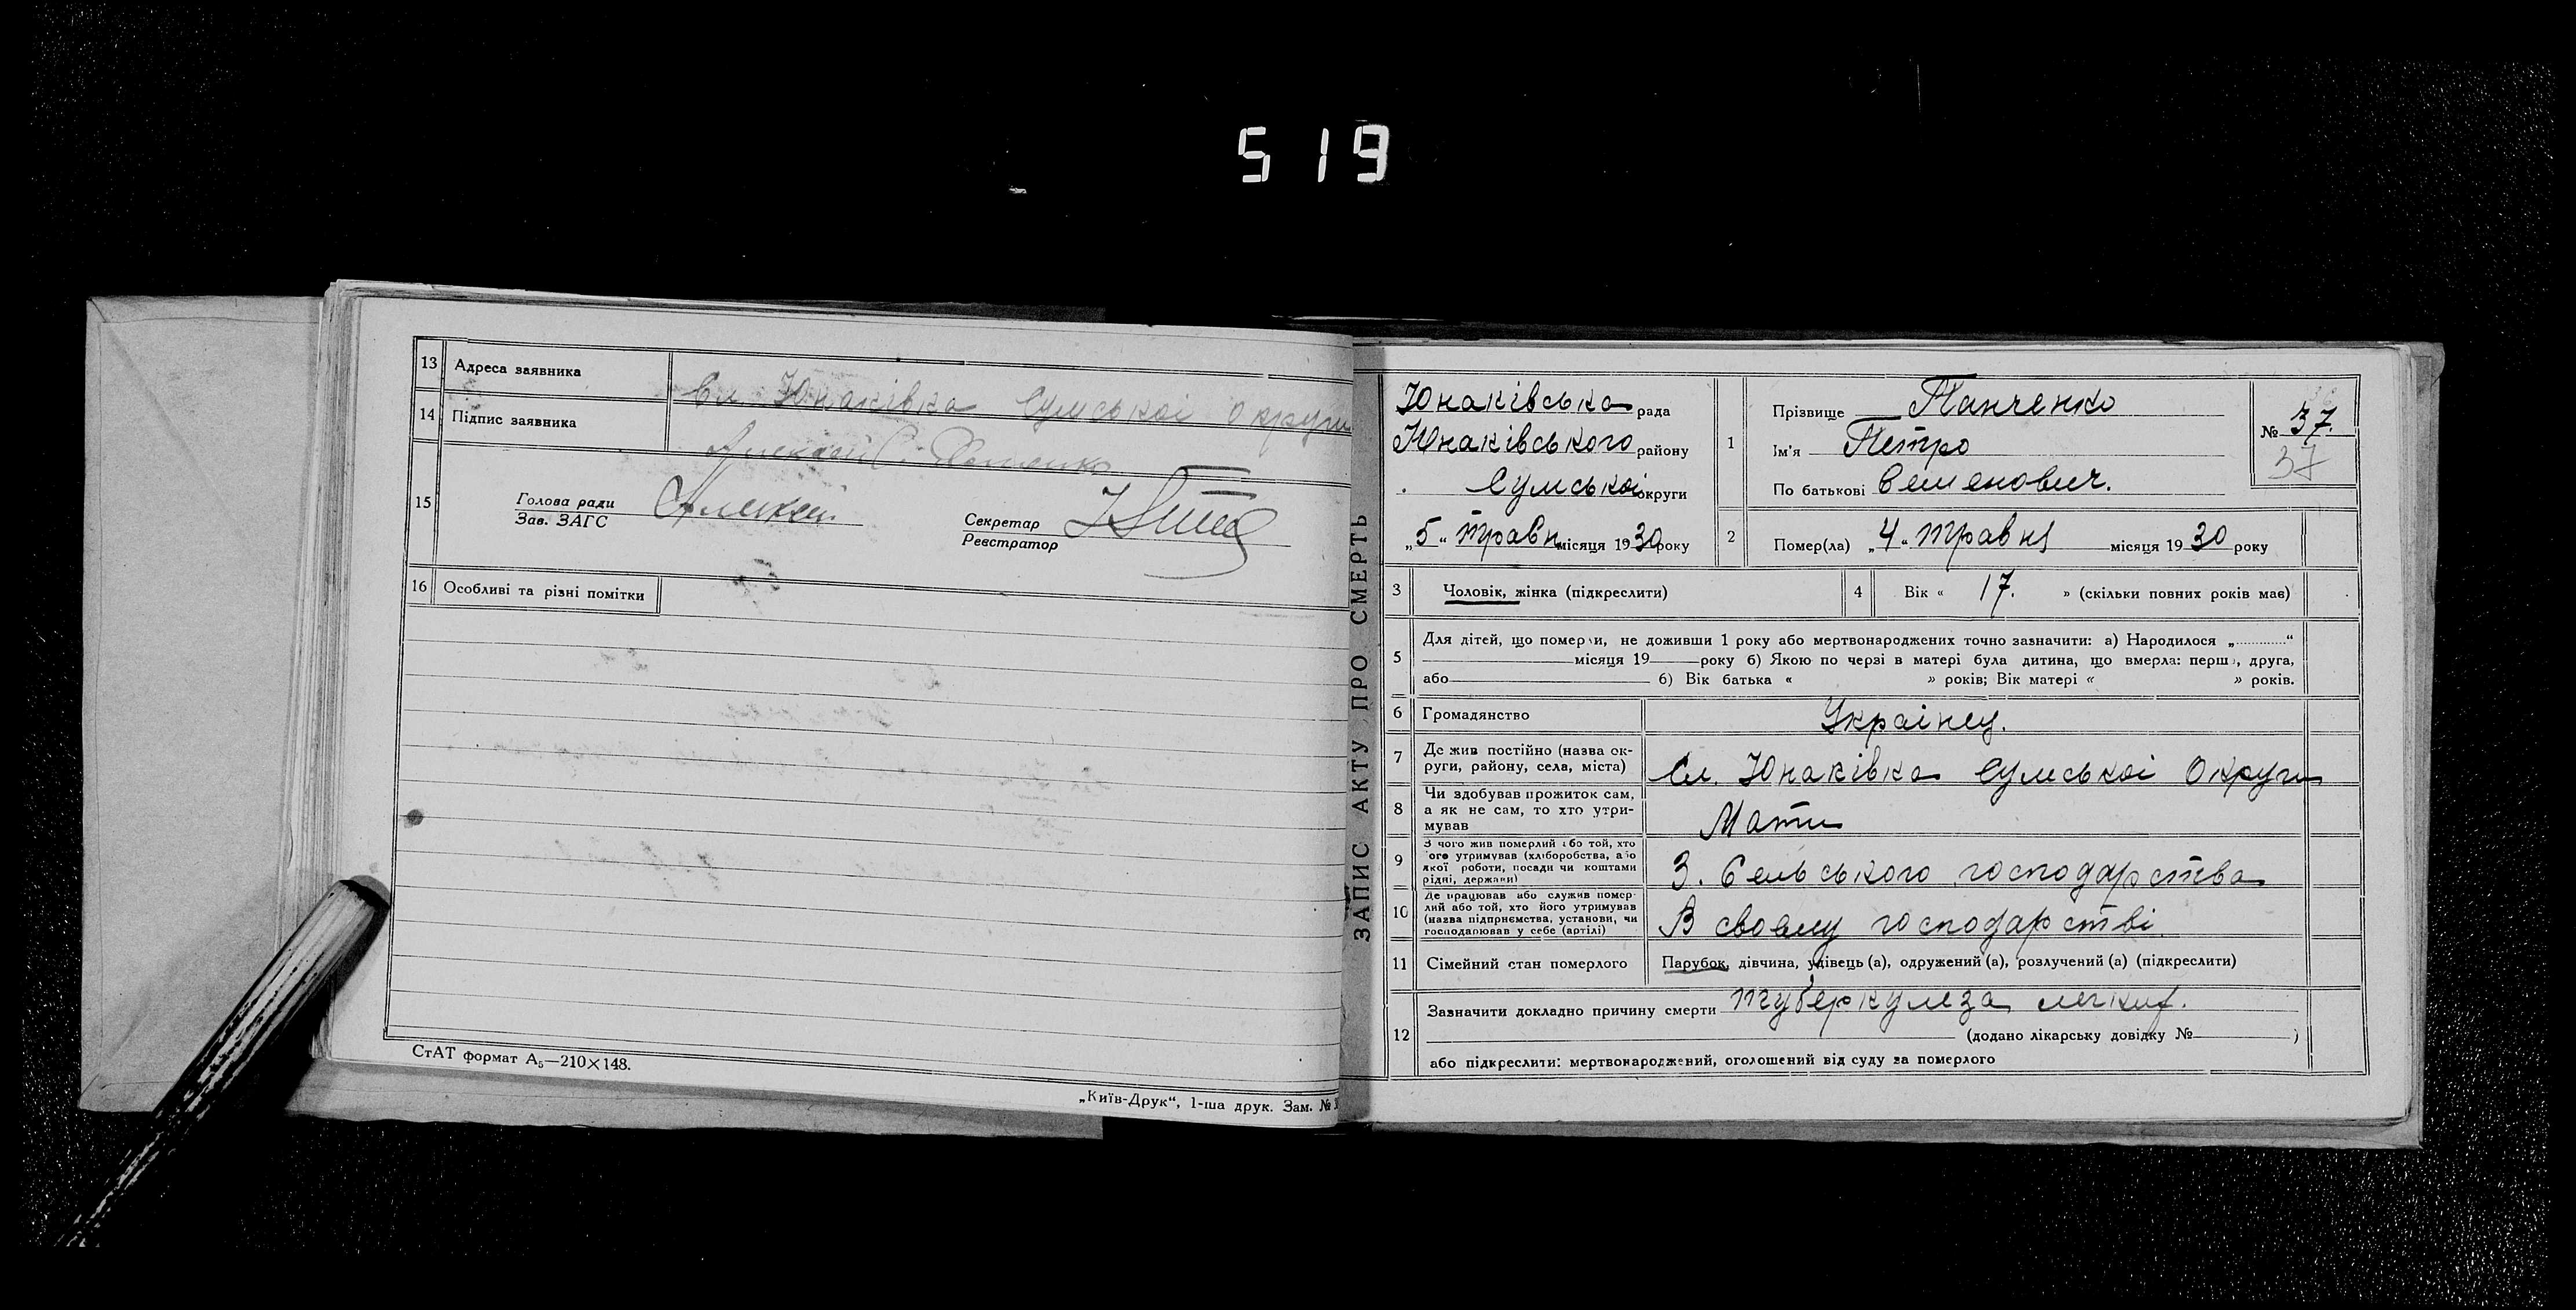 519
13 Адреса заявника Сл. Юнаківка Сумськоі округи
14 Підпис заявника
15 Голова ради
Зав. ЗАГС
Секретар
Реєстратор
16 Особливі та різні помітки
СтАТ формат А₅—210×148.
„Київ-Друк“, 1-ша друк. Зам. №
ЗАПИС АКТУ ПРО СМЕРТЬ
Юнаківська рада
Юнаківського району
Сумськоі округи
„5“ травн місяця 1930 року
1 Прізвище Панченко
Ім'я Петро
По батькові Семенович.
№ 37.
37
2 Помер(ла) „4“ травня місяця 1930 року
3 Чоловік, жінка (підкреслити)
4 Вік « 17. » (скільки повних років має)
5 Для дітей, що померли, не доживши 1 року або мертвонароджених точно зазначити: а) Народилося „............“
місяця 19 року б) Якою по черзі в матері була дитина, що вмерла: перша, друга,
або б) Вік батька « » років; Вік матері « » років.
6 Громадянство Украінец.
7 Де жив постійно (назва ок-
руги, району, села, міста) Сл. Юнаківка Сумськоі Округи
8 Чи здобував прожиток сам,
а як не сам, то хто утри-
мував Мати
9 З чого жив померлий або той, хто
його утримував (хліборобства, або
якої роботи, посади чи коштами
рідні, держави) З. Сельського господарства
10 Де працював або служив помер-
лий або той, хто його утримував
(назва підприємства, установи, чи
господарював у себе (артілі) В своему господарстві.
11 Сімейний стан померлого Парубок, дівчина, удівець (а), одружений (а), розлучений (а) (підкреслити)
12 Зазначити докладно причину смерти туберкулеза легких.
(додано лікарську довідку № )
або підкреслити: мертвонароджений, оголошений від суду за померлого